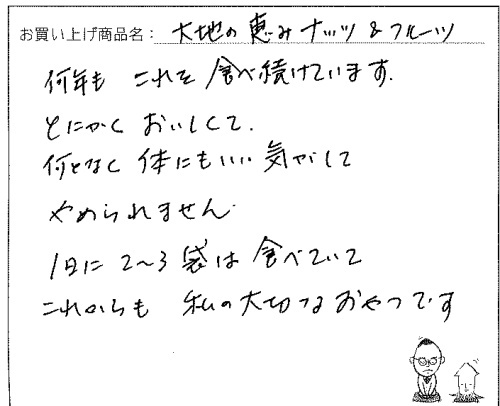 お買い上げ商品名： 大地の恵みナッツ&フルーツ
何年も これを 食べ続けています.
とにかく おいしくて.
何となく 体にもいい 気がして
やめられません.
1日に 2〜3 袋は 食べていて
これからも 私の大切なおやつです